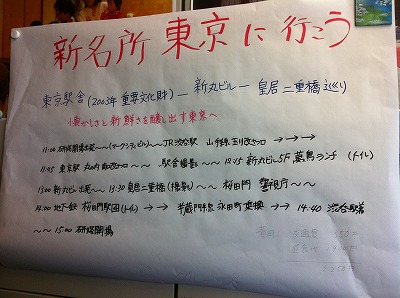 新名所 東京に行こう
東京駅舎(2003年 重要文化財)― 新丸ビル ― 皇居二重橋巡り
懐かしさと新鮮さを醸し出す東京へ
11:00 研修開場出発~~(マークシティビル)~~JR渋谷駅 山手線 玉川改さつロ→→→
11:45 東京駅 丸の内南改さつロ~~ 駅舎撮影~~ 12:15 新丸ビル5F ランチ (トイレ)
13:00 新丸ビル出発~~13:30 皇居二重橋(撮影)~~ 桜田門 警視庁~~
14:00 地下鉄 桜田門駅(トイレ)→→ 半蔵門線 永田町乗換 →→ 14:40 渋谷駅着
~~15:00 研修開場
費用 交通費
昼食代